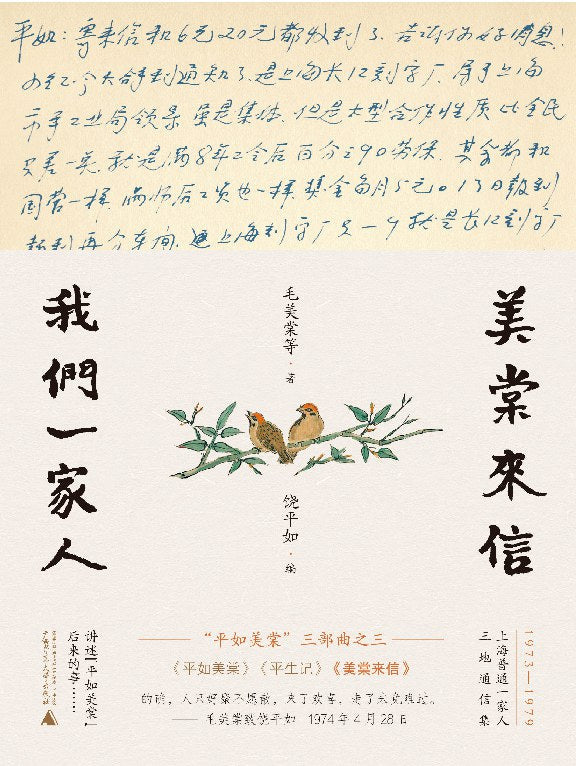 平如：寄来信和6元20元都收到了，告诉你好消息！
今天 到通知了，是上海长江刻字厂，属于上海
市手工业局领导，虽是集体，但是大型合作性质，比全民
只差一点，就是满8年工令后百分之90劳保，其余都和
国营一样，工资也一样，奖金每月5元。13日报到
报到再分车间，上海刻字厂只一个就是长江刻字厂
美棠來信
毛美棠等·著
饶平如·编
我們一家人
1973—1979
上海普通一家人
三地通信集
“平如美棠”三部曲之三
《平如美棠》《平生记》《美棠来信》
的确，人只好聚不愿散，来了欢喜，走了未免难过。
——毛美棠致饶平如 1974年4月28日
讲述「平如美棠」
后来的事……
广西师范大学出版社